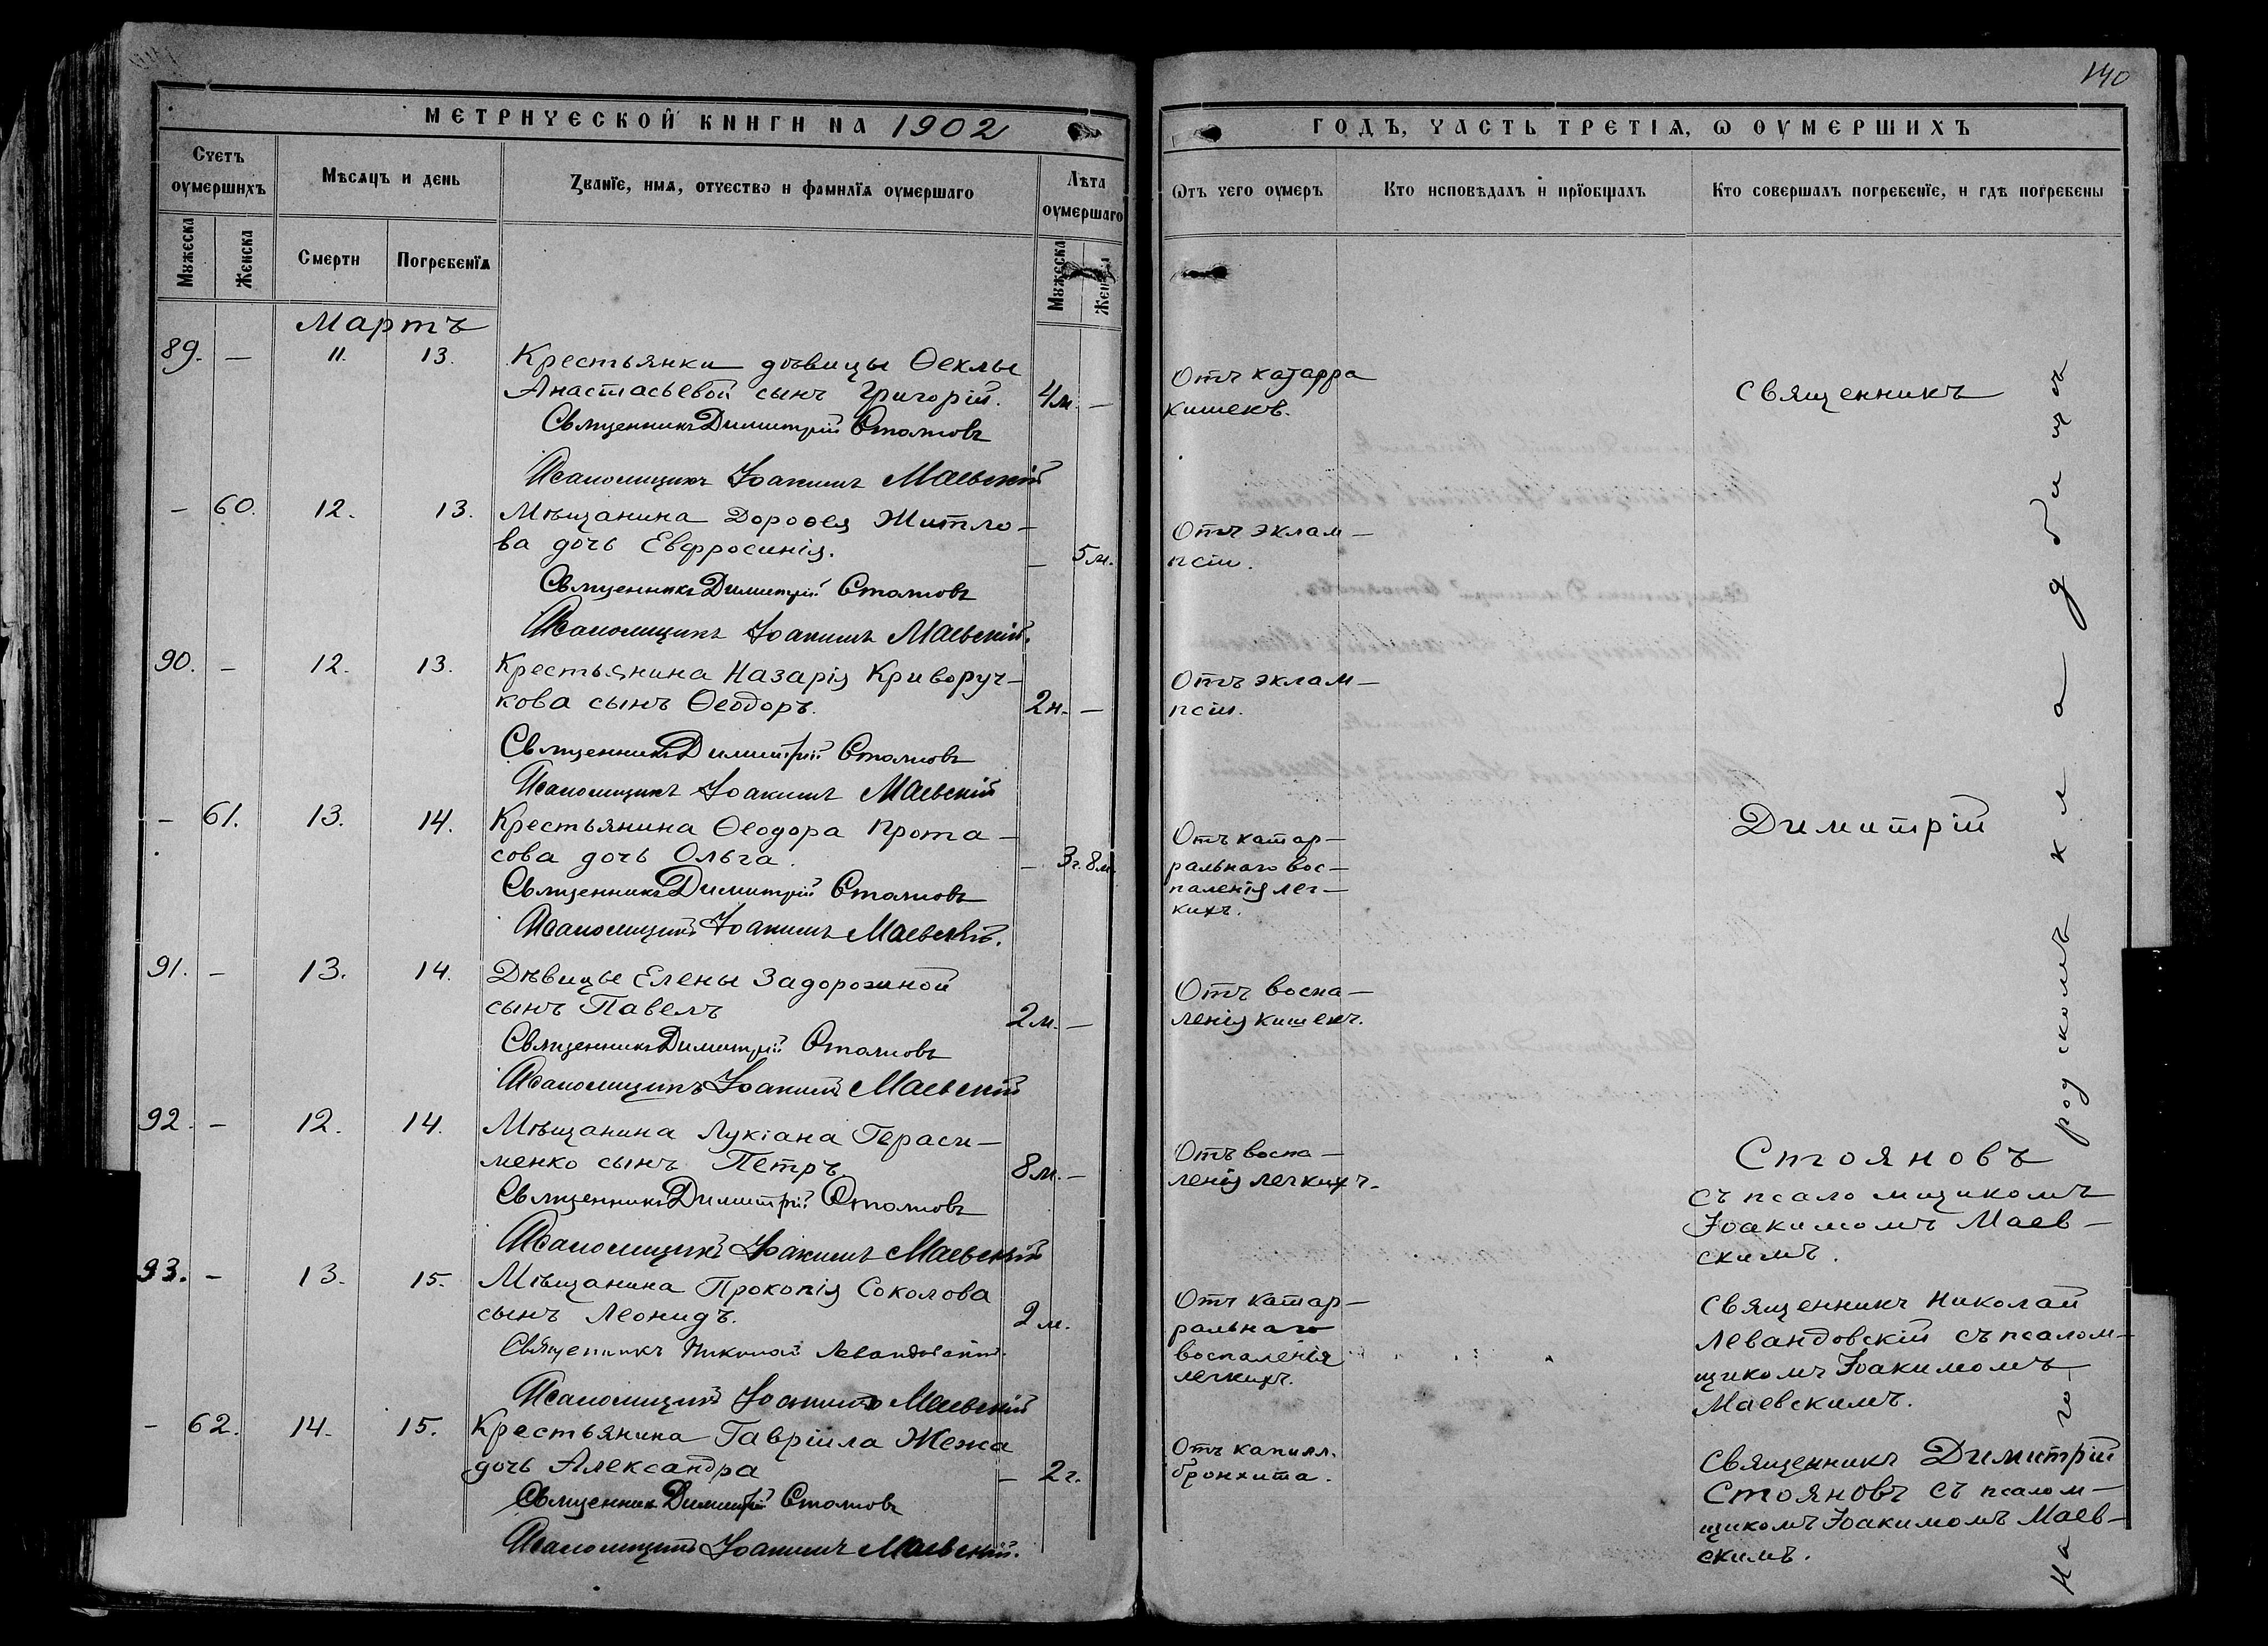 МЕТРИЧЕСКОЙ КНИГИ НА 1902
Счетъ оумершихъ
Мѣсяцъ и день
Званїе, имя, отчество и фамилїя оумершаго
Лѣта оумершаго
Мужеска
Женска
Смерти
Погребенїя
Мужеска
Женска
Мартъ
89. — 11. 13. Крестьянки дѣвицы Ѳеклы
Анастасьевой сынъ Григорій. 4 м. —
Священникъ Димитрій Стояновъ
Псаломщикъ Іоакимъ Маевскій
— 60. 12. 13. Мѣщанина Дороѳея Житло-
ва дочь Евфросинія. — 5 м.
Священникъ Димитрій Стояновъ
Псаломщикъ Іоакимъ Маевскій.
90. — 12. 13. Крестьянина Назарія Криворуч-
кова сынъ Ѳеодоръ. 2 н. —
Священникъ Димитрій Стояновъ
Псаломщикъ Іоакимъ Маевскій
— 61. 13. 14. Крестьянина Ѳеодора Прота-
сова дочь Ольга. — 3 г. 8 м.
Священникъ Димитрій Стояновъ
Псаломщикъ Іоакимъ Маевскій.
91. — 13. 14. Дѣвицы Елены Задорожной
сынъ Павелъ 2 м. —
Священникъ Димитрій Стояновъ
Псаломщикъ Іоакимъ Маевскій
92. — 12. 14. Мѣщанина Лукіана Гераси-
менко сынъ Петръ 8 м. —
Священникъ Димитрій Стояновъ
Псаломщикъ Іоакимъ Маевскій
93. — 13. 15. Мѣщанина Прокопія Соколова
сынъ Леонидъ. 2 м.
Священникъ Николай Левандовскій.
Псаломщикъ Іоакимъ Маевскій
— 62. 14. 15. Крестьянина Гавріила Жежа
дочь Александра — 2 г.
Священникъ Димитрій Стояновъ
Псаломщикъ Іоакимъ Маевскій.
140
ГОДЪ, ЧАСТЬ ТРЕТІЯ, Ѡ ОУМЕРШИХЪ
Ѿтъ чего оумеръ
Кто исповѣдалъ и прїобщалъ
Кто совершалъ погребенїе, и гдѣ погребены
Отъ катарра
кишекъ.
Отъ эклам-
псіи.
Отъ эклам-
псіи.
Отъ катар-
ральнаго вос-
паленія лег-
кихъ.
Отъ воспа-
ленія кишекъ.
Отъ воспа-
ленія легкихъ.
Отъ катар-
ральнаго
воспаленія
легкихъ.
Отъ капилл.
бронхита.
Священникъ
Димитрій
Стояновъ
съ псаломщикомъ
Іоакимомъ Маев-
скимъ.
Священникъ Николай
Левандовскій съ псалом-
щикомъ Іоакимомъ
Маевскимъ.
Священникъ Димитрій
Стояновъ съ псалом-
щикомъ Іоакимомъ Маев-
скимъ.
На го-
родскомъ кладбищѣ